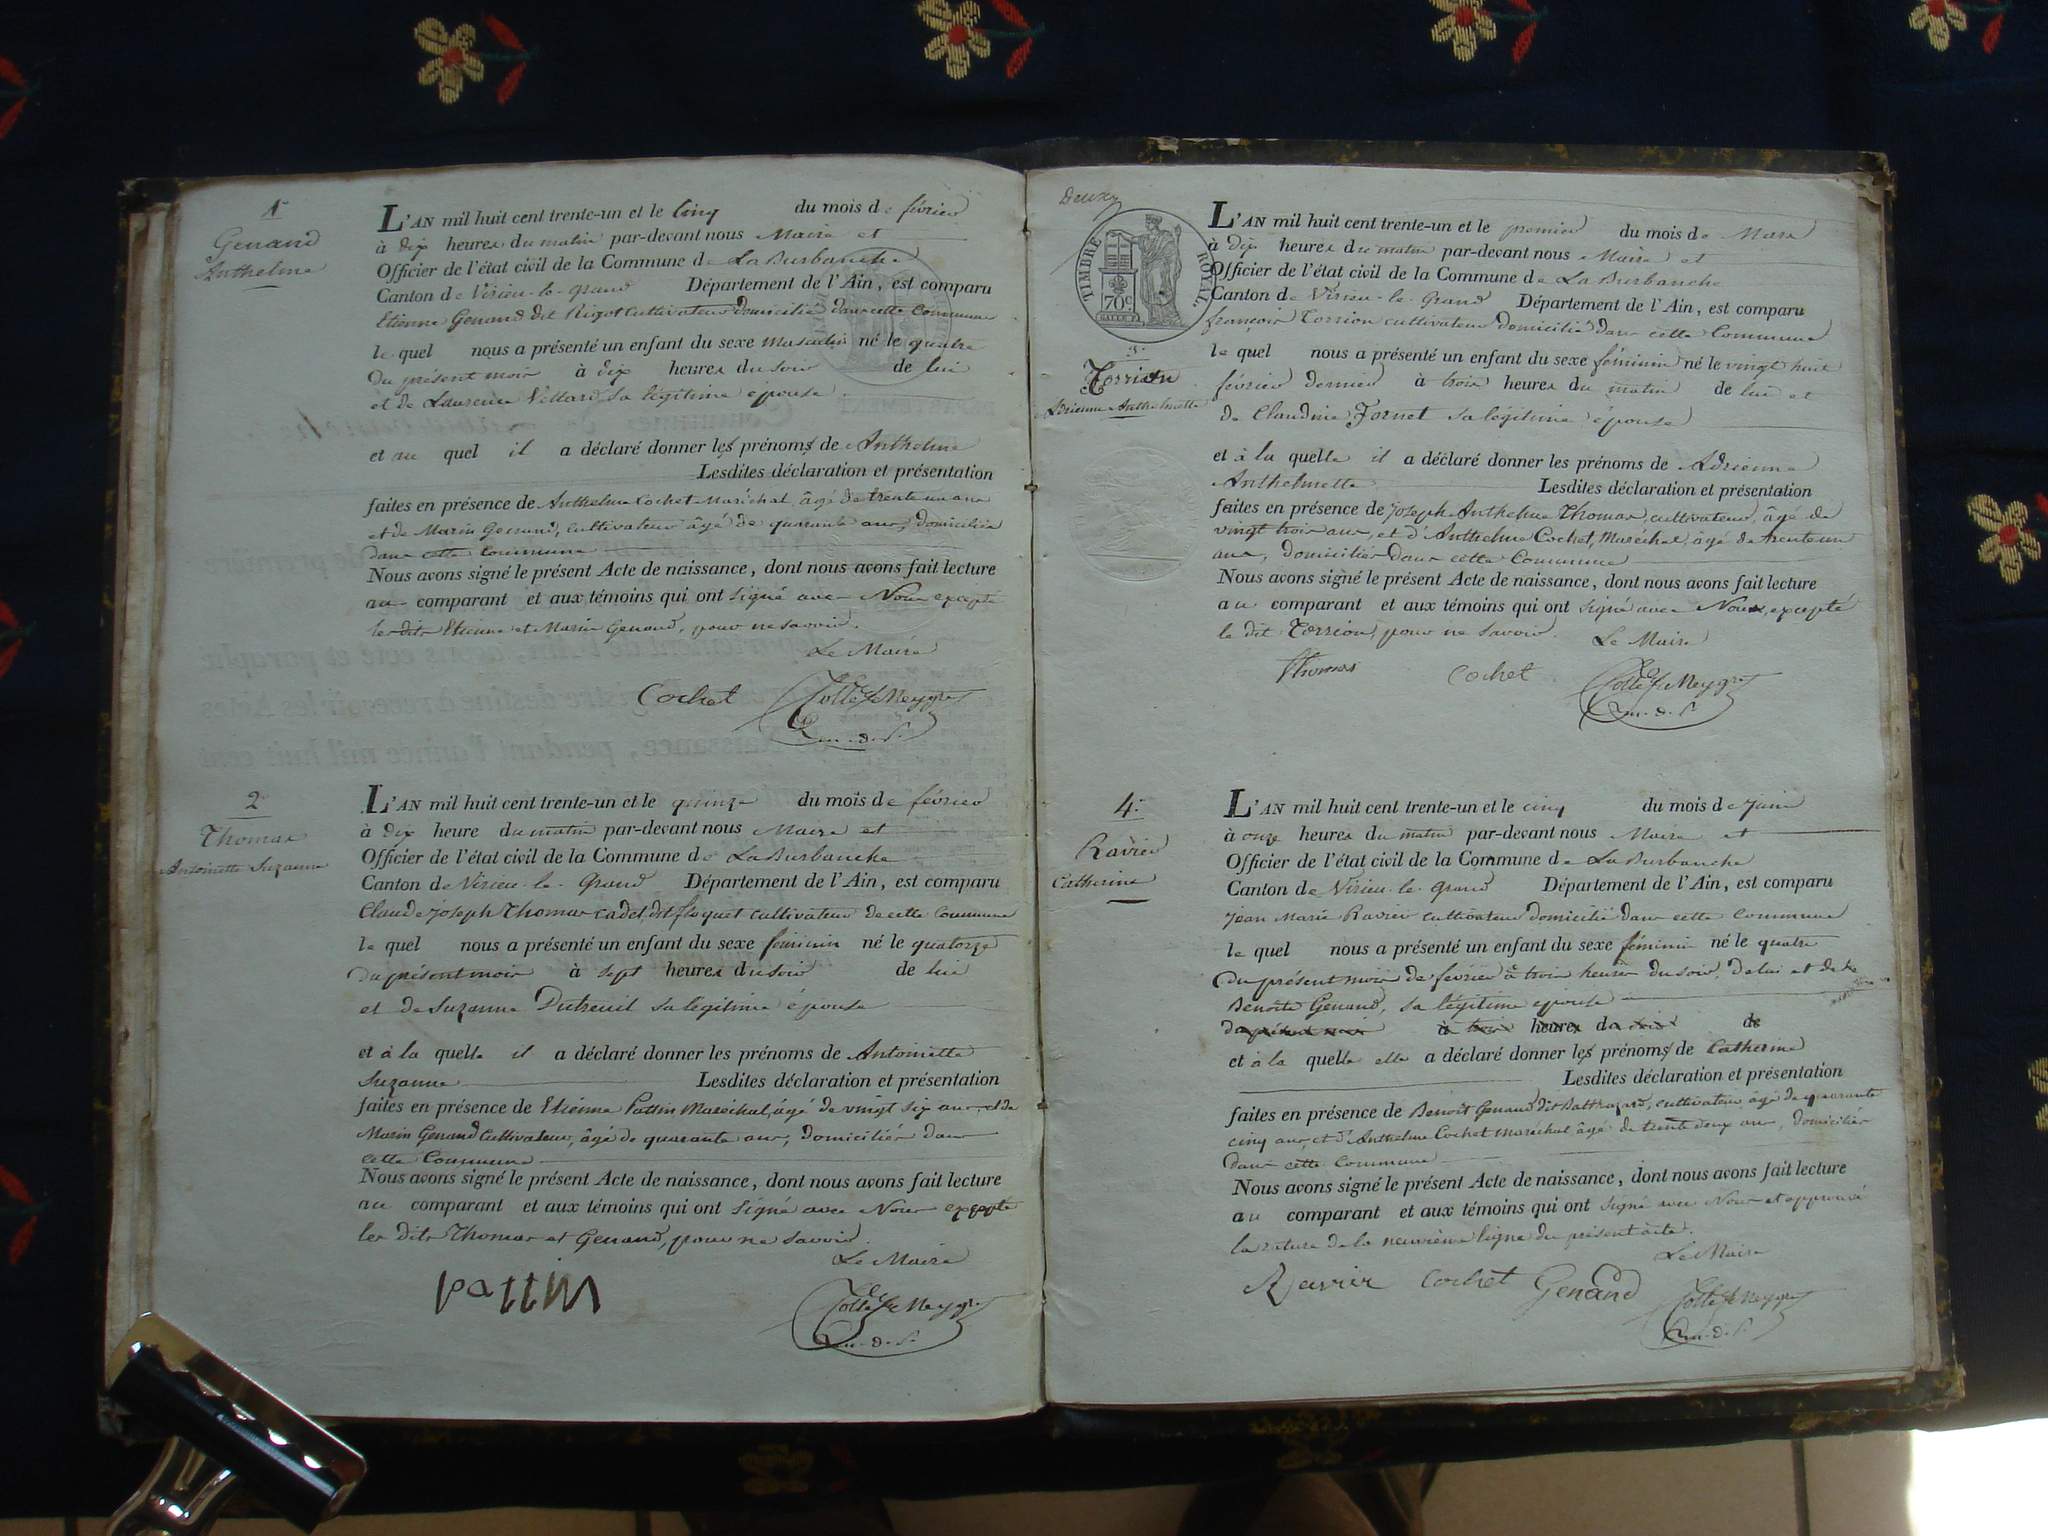 1
Genand
Anthelme
L'AN mil huit cent trente-un et le Cinq du mois de février
à dix heures du matin par-devant nous Maire et
Officier de l'état civil de la Commune de La Burbanche
Canton de Virieu-le-grand Département de l'Ain, est comparu
Etienne Genand dit Rigot Cultivateur domicilié dans cette Commune
le quel nous a présenté un enfant du sexe masculin né le quatre
du présent mois à dix heures du soir de lui
et de Laurence Vettard sa légitime épouse
et au quel il a déclaré donner les prénoms de Anthelme
Lesdites déclaration et présentation
faites en présence de Anthelme Cochet Maréchal âgé de trente un ans
et de Marin Genand, cultivateur âgé de quarante ans, domiciliés
dans cette Commune
Nous avons signé le présent Acte de naissance, dont nous avons fait lecture
au comparant et aux témoins qui ont signé avec Nous excepté
les dits Etienne et Marin Genand, pour ne savoir.
Le Maire
Cochet
2
Thomas
Antoinette Suzanne
L'AN mil huit cent trente-un et le quinze du mois de février
à dix heure du matin par-devant nous Maire et
Officier de l'état civil de la Commune de La Burbanche
Canton de Virieu-le-Grand Département de l'Ain, est comparu
Claude Joseph Thomas cadet dit floquet cultivateur de cette Commune
le quel nous a présenté un enfant du sexe féminin né le quatorze
du présent mois à sept heures du soir de lui
et de Suzanne Dutreuil sa légitime épouse
et à la quelle il a déclaré donner les prénoms de Antoinette
Suzanne Lesdites déclaration et présentation
faites en présence de Etienne Pattin Maréchal, âgé de vingt six ans et de
Marin Genand Cultivateur, âgé de quarante ans, domiciliés dans
cette Commune
Nous avons signé le présent Acte de naissance, dont nous avons fait lecture
au comparant et aux témoins qui ont signé avec Nous excepté
les dits Thomas et Genand, pour ne savoir.
Le Maire
pattin
Deux
TIMBRE ROYAL
70c
3
Torrion
Adrienne Anthelmette
L'AN mil huit cent trente-un et le premier du mois de Mars
à dix heures du matin par-devant nous Maire et
Officier de l'état civil de la Commune de La Burbanche
Canton de Virieu-le-Grand Département de l'Ain, est comparu
françois Torrion cultivateur domicilié dans cette Commune
le quel nous a présenté un enfant du sexe féminin né le vingt huit
février dernier à trois heures du matin de lui et
de Claudine Fornet sa légitime épouse
et à la quelle il a déclaré donner les prénoms de Adrienne
Anthelmette Lesdites déclaration et présentation
faites en présence de Joseph Anthelme Thomas, cultivateur, âgé de
vingt trois ans, et d'Anthelme Cochet, Maréchal, âgé de trente un
ans, domiciliés dans cette Commune
Nous avons signé le présent Acte de naissance, dont nous avons fait lecture
au comparant et aux témoins qui ont signé avec Nous, excepté
le dit Torrion, pour ne savoir.
Le Maire
Thomas Cochet
4
Ravier
Catherine
L'AN mil huit cent trente-un et le cinq du mois de Juin
à onze heures du matin par-devant nous Maire et
Officier de l'état civil de la Commune de La Burbanche
Canton de Virieu-le-grand Département de l'Ain, est comparu
Jean Marie Ravier cultivateur domicilié dans cette Commune
le quel nous a présenté un enfant du sexe féminin né le quatre
du présent mois de février à trois heures du soir, de lui et de
Benoîte Genand, sa légitime épouse
du présent mois à trois heures du soir de
et à la quelle elle a déclaré donner les prénoms de Catherine
Lesdites déclaration et présentation
faites en présence de Benoît Genand dit Balthazard, cultivateur âgé de quarante
cinq ans, et d'Anthelme Cochet maréchal âgé de trente deux ans, domiciliés
dans cette Commune
Nous avons signé le présent Acte de naissance, dont nous avons fait lecture
au comparant et aux témoins qui ont signé avec Nous et approuvé
la rature de la neuvième ligne du présent acte.
Le Maire
Ravier Cochet Genand